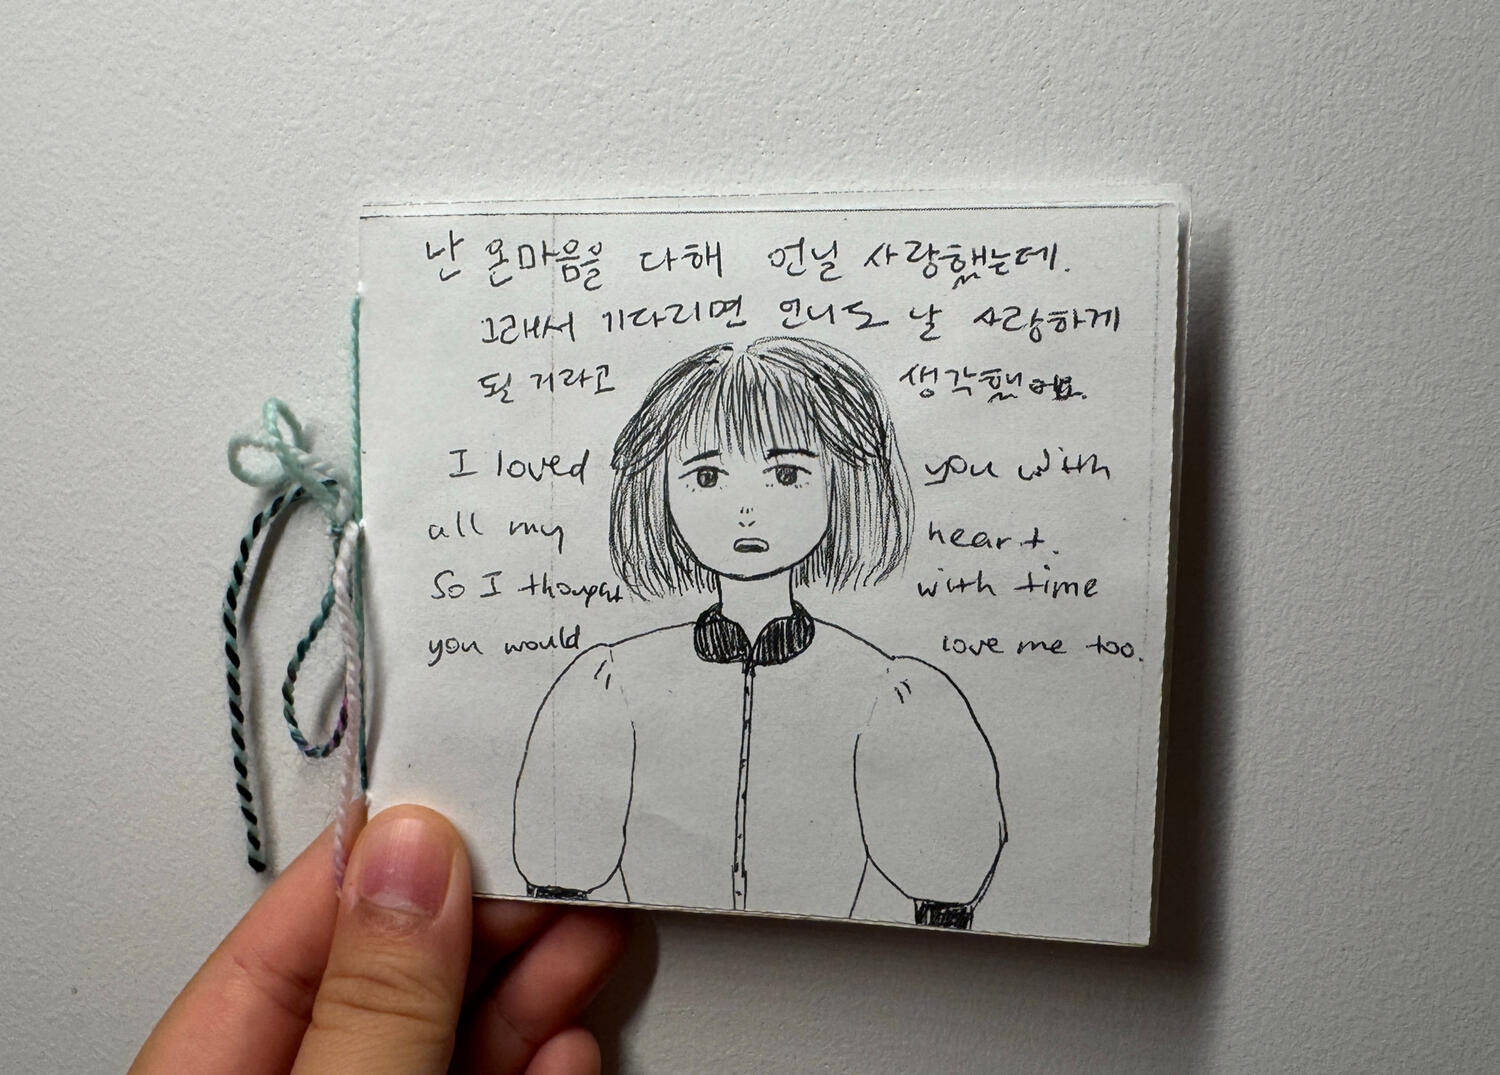 난 온마음을 다해 언닐 사랑했는데.
그래서 기다리면 언니도 날 사랑하게
될 거라고 생각했어요.
I loved you with
all my heart.
So I thought with time
you would love me too.